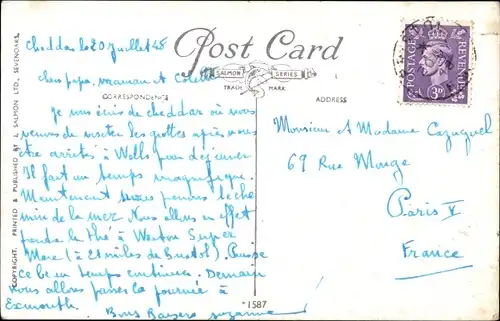 Cheddar le 20 juillet 48
Post Card
cher papa, maman et Colette
SALMON SERIES
TRADE MARK
CORRESPONDENCE
ADDRESS
POSTAGE REVENUE
3D
Je vous écris de cheddar où nous
venons de visiter les grottes après nous
être arrêtés à Wells pour déjeuner
Il fait un temps magnifique.
Maintenant nous prenons le che
min de la mer. Nous allons en effet
prendre le thé à Weston Super
Mare (à 21 miles de Bristol). Puisse
ce beau temps continuer. Demain
nous allons passer la journée à
Exmouth.
Bons Baisers Suzanne
Monsieur et Madame
69 Rue Monge
Paris V
France
COPYRIGHT. PRINTED & PUBLISHED BY J. SALMON LTD., SEVENOAKS.
1587